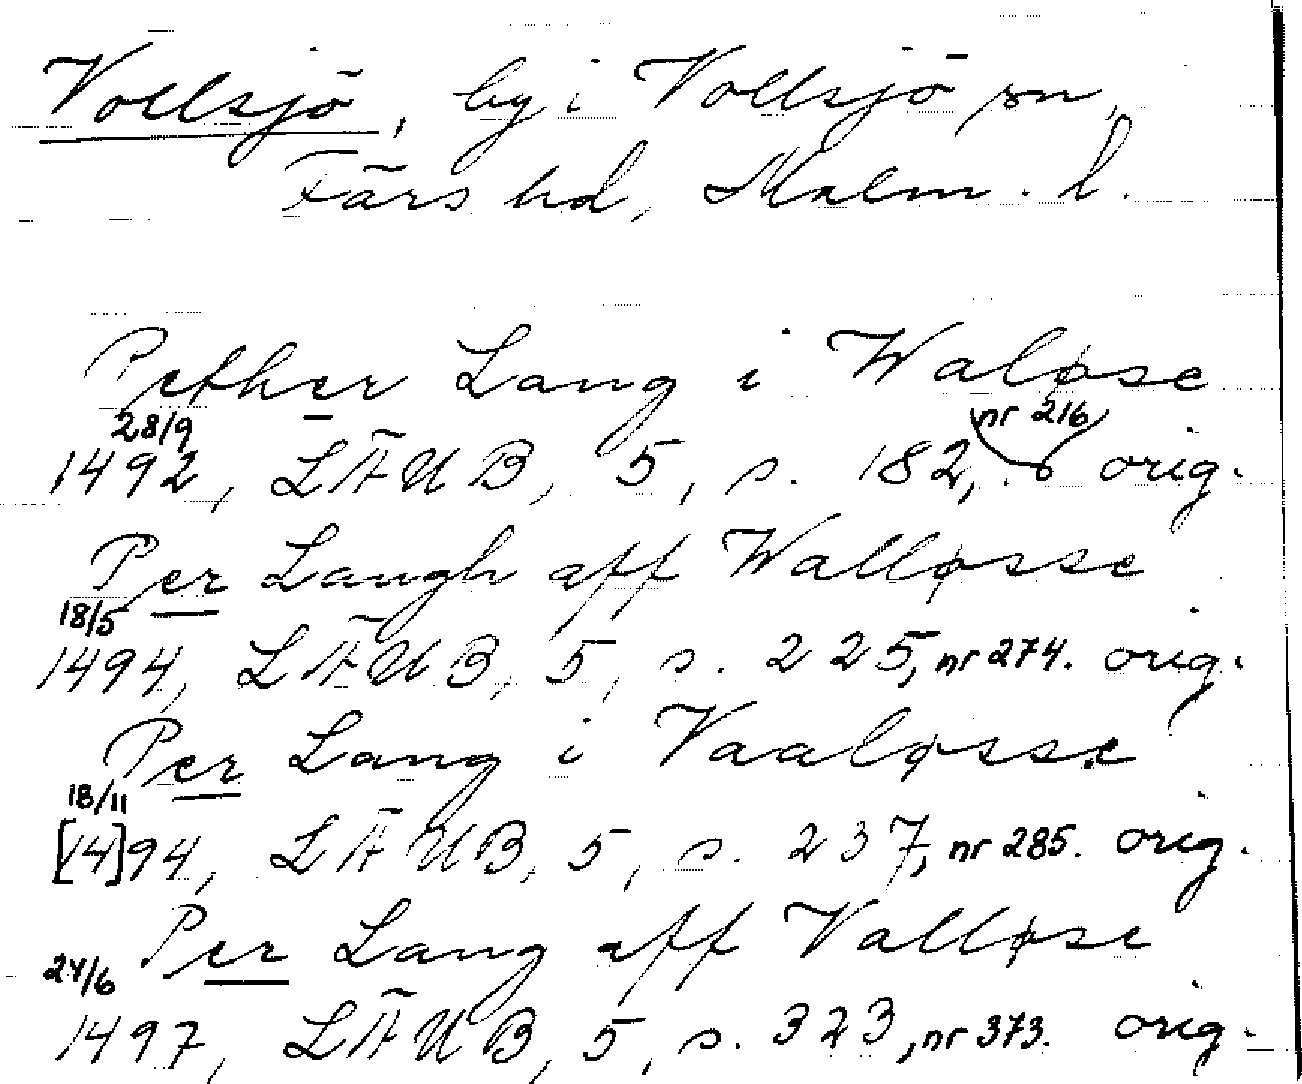 Vollsjö, by i Vollsjö sn,
Färs hd, Malm. l.
Pether Lang i Waløse
28/9 nr 216
1492, LÄUB, 5, s. 182, orig.
Per Langh aff Walløsse
18/5
1494, LÄUB, 5, s. 225, nr 274. orig.
Per Lang i Vaaløsse
18/11
[14]94, LÄUB, 5, s. 237, nr 285. orig.
Per Lang aff Valløse
24/6
1497, LÄUB, 5, s. 323, nr 373. orig.